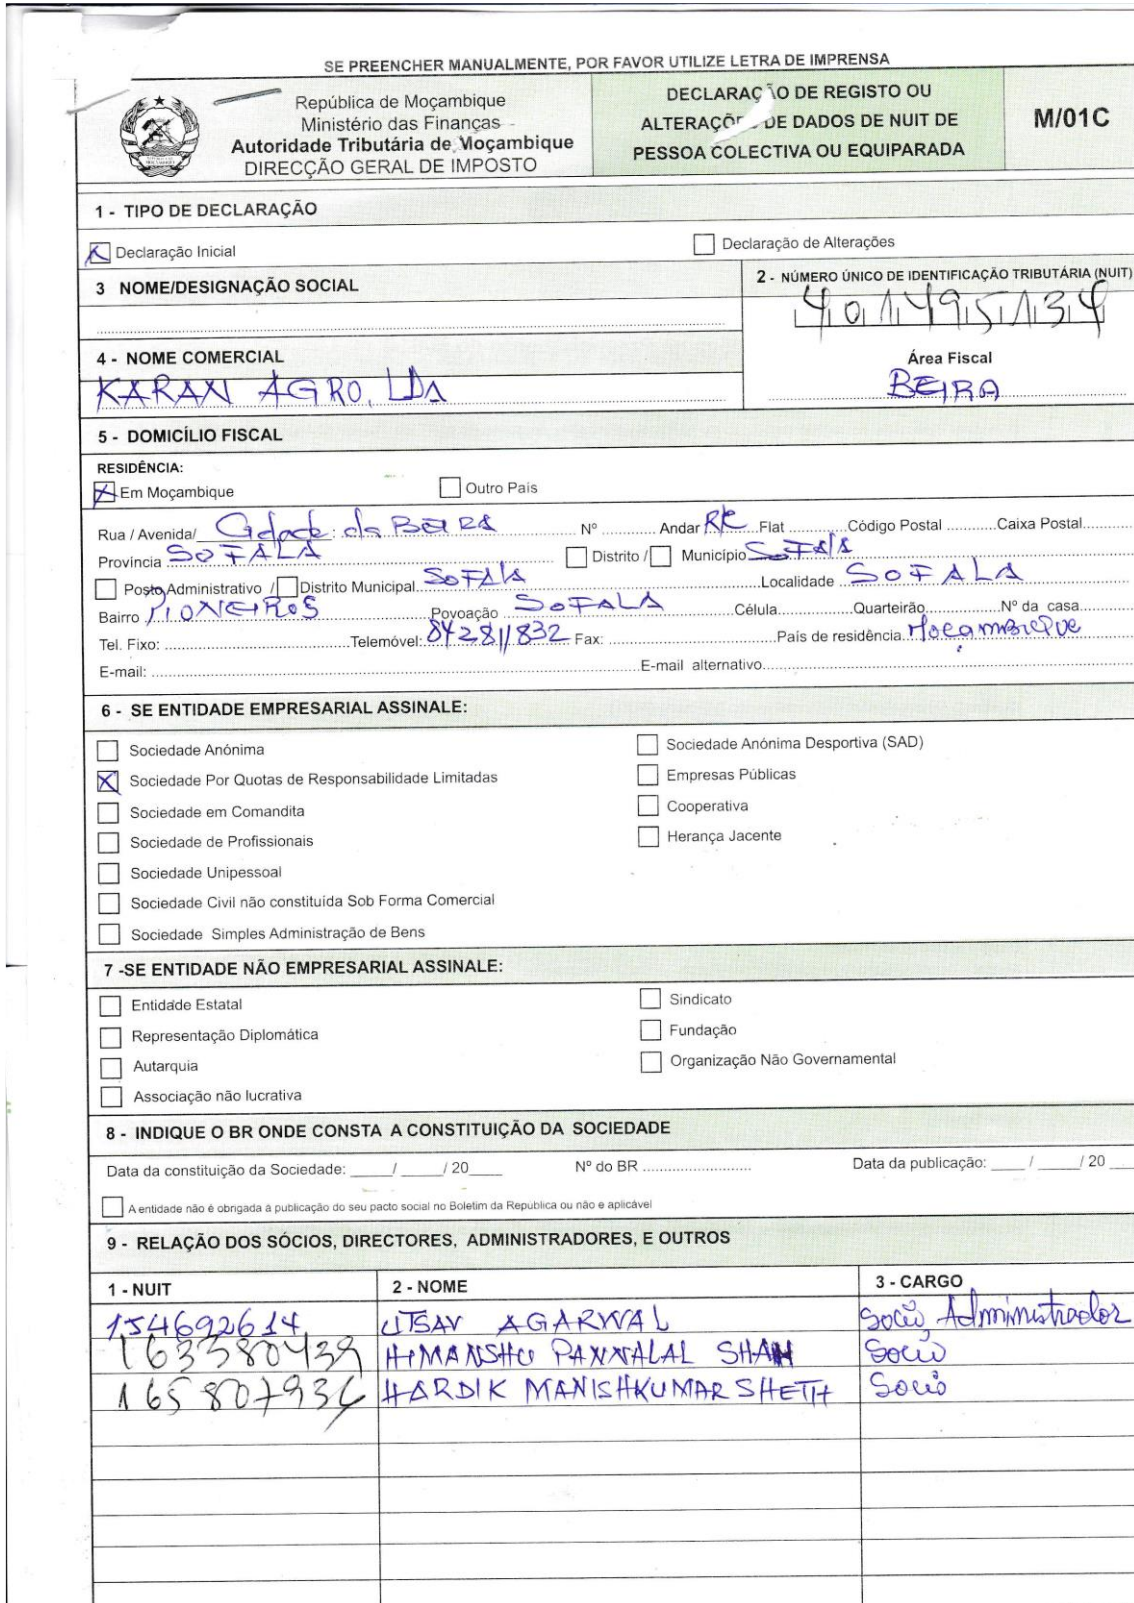 SE PREENCHER MANUALMENTE, POR FAVOR UTILIZE LETRA DE IMPRENSA
República de Moçambique
Ministério das Finanças
Autoridade Tributária de Moçambique
DIRECÇÃO GERAL DE IMPOSTO
DECLARAÇÃO DE REGISTO OU
ALTERAÇÕES DE DADOS DE NUIT DE
PESSOA COLECTIVA OU EQUIPARADA
M/01C
1 - TIPO DE DECLARAÇÃO
Declaração Inicial
Declaração de Alterações
3 NOME/DESIGNAÇÃO SOCIAL
2 - NÚMERO ÚNICO DE IDENTIFICAÇÃO TRIBUTÁRIA (NUIT)
401495134
4 - NOME COMERCIAL
KARAN AGRO, LDA
Área Fiscal
BEIRA
5 - DOMICÍLIO FISCAL
RESIDÊNCIA:
Em Moçambique
Outro País
Rua / Avenida/ Cidade da BEIRA Nº Andar R/C Flat Código Postal Caixa Postal
Província SOFALA Distrito / Município SOFALA
Posto Administrativo / Distrito Municipal SOFALA Localidade SOFALA
Bairro PIONEIROS Povoação SOFALA Célula Quarteirão Nº da casa
Tel. Fixo: Telemóvel: 842811832 Fax: País de residência Moçambique
E-mail: E-mail alternativo
6 - SE ENTIDADE EMPRESARIAL ASSINALE:
Sociedade Anónima
Sociedade Anónima Desportiva (SAD)
Sociedade Por Quotas de Responsabilidade Limitadas
Empresas Públicas
Sociedade em Comandita
Cooperativa
Sociedade de Profissionais
Herança Jacente
Sociedade Unipessoal
Sociedade Civil não constituída Sob Forma Comercial
Sociedade Simples Administração de Bens
7 -SE ENTIDADE NÃO EMPRESARIAL ASSINALE:
Entidade Estatal
Sindicato
Representação Diplomática
Fundação
Autarquia
Organização Não Governamental
Associação não lucrativa
8 - INDIQUE O BR ONDE CONSTA A CONSTITUIÇÃO DA SOCIEDADE
Data da constituição da Sociedade: / / 20 Nº do BR Data da publicação: / / 20
A entidade não é obrigada à publicação do seu pacto social no Boletim da Republica ou não e aplicável
9 - RELAÇÃO DOS SÓCIOS, DIRECTORES, ADMINISTRADORES, E OUTROS
1 - NUIT 2 - NOME 3 - CARGO
154692614 UTSAV AGARWAL Socio Administrador
163380439 HIMANSHU PANNALAL SHAH Socio
HARDIK MANISHKUMAR SHETH Socio